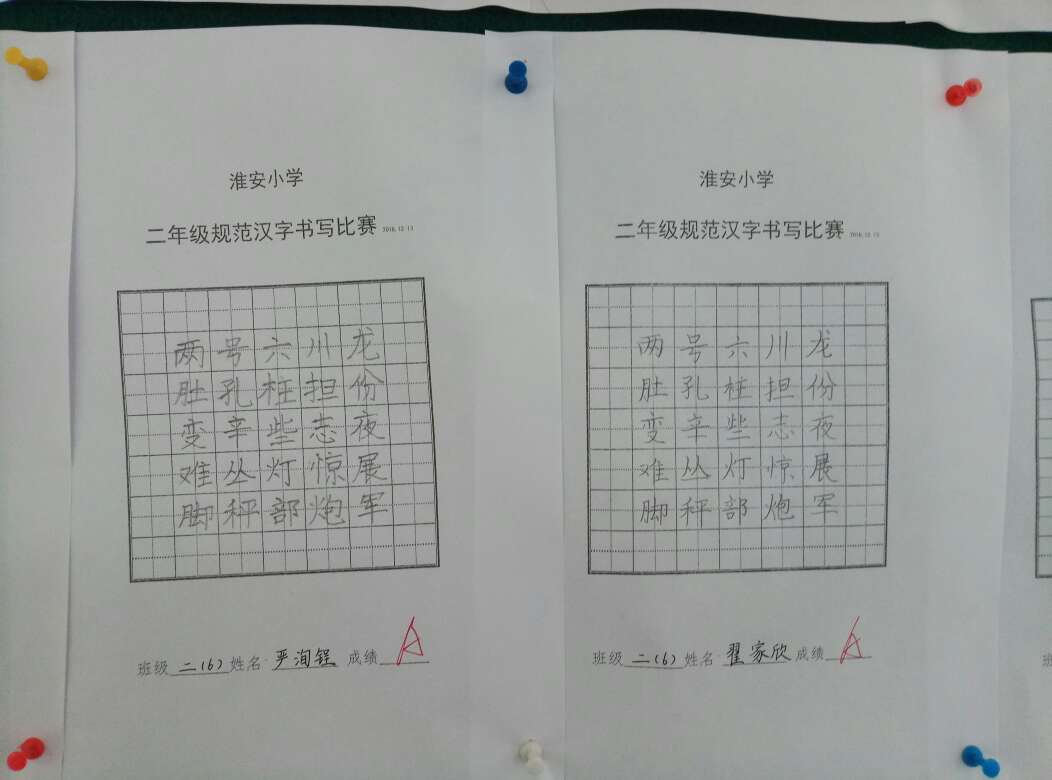 淮安小学
二年级规范汉字书写比赛 2016.12.13
两号六川龙
肚孔柱担份
变辛些志夜
难丛灯惊展
脚秤部炮军
班级 二(6) 姓名 严洵锃 成绩 A
淮安小学
二年级规范汉字书写比赛 2016.12.13
两号六川龙
肚孔桂担份
变辛些志夜
难丛灯惊展
脚秤部炮军
班级 二(6) 姓名 翟家欣 成绩 A
班